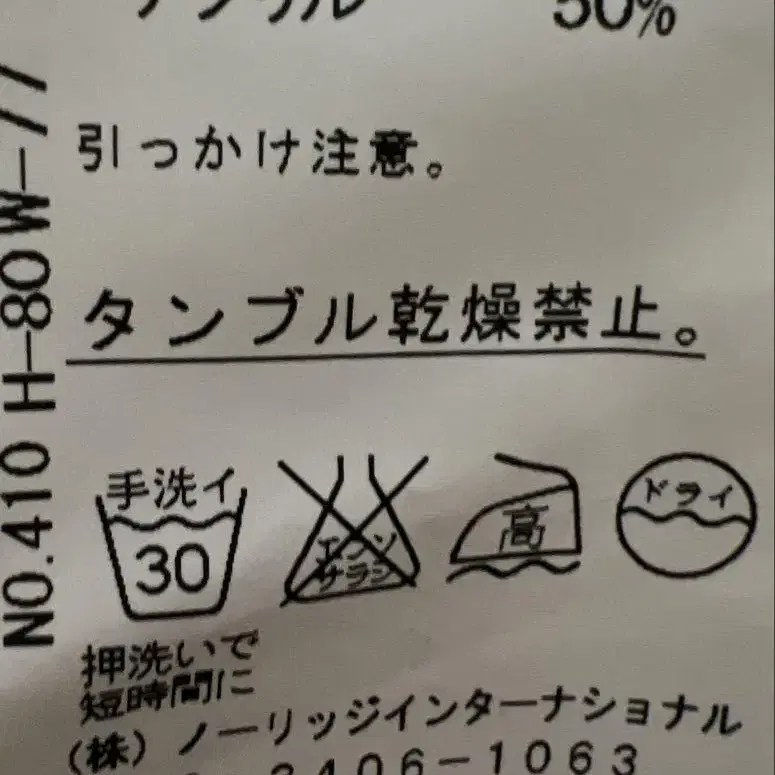 アクリル 50%
引っかけ注意。
タンブル乾燥禁止。
手洗イ
30
エンソ
サラシ
高
ドライ
押洗いで
短時間に
(株) ノーリッジインターナショナル
3406-1063
NO.410 H-80W-77